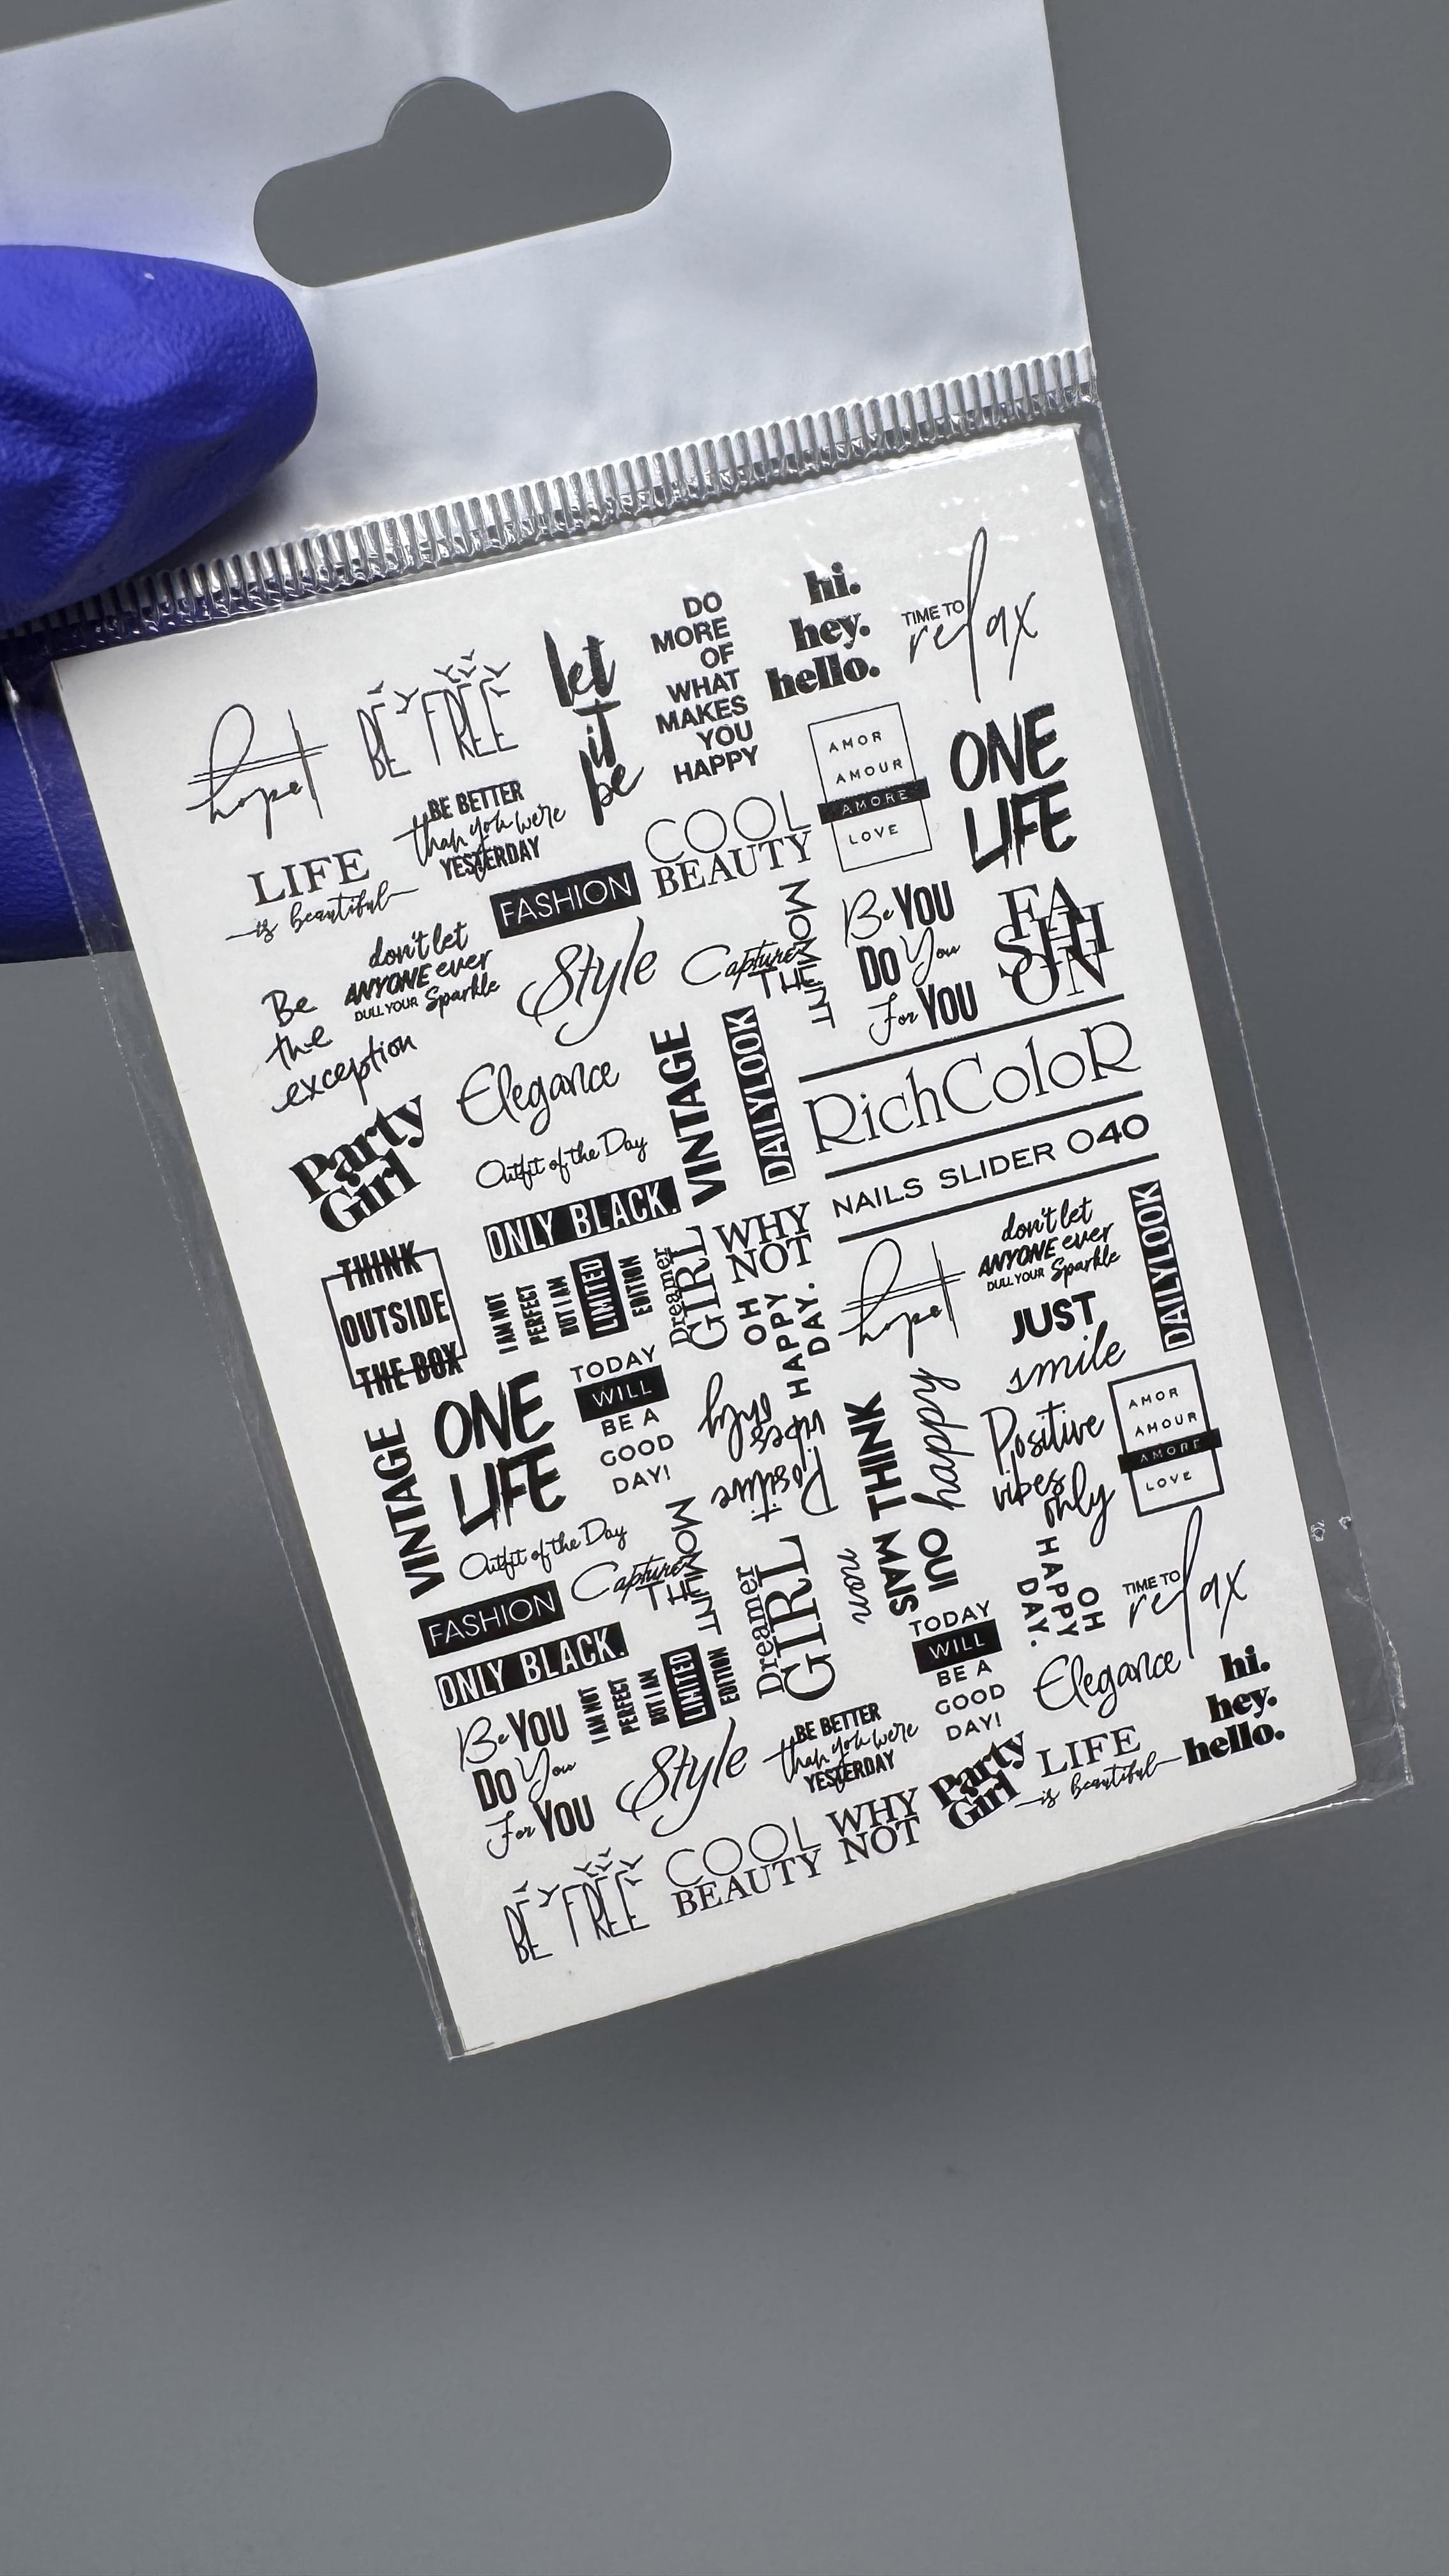 hope
BE FREE
let
it
be
DO
MORE
OF
WHAT
MAKES
YOU
HAPPY
hi.
hey.
hello.
TIME TO
relax
LIFE
is beautiful
BE BETTER
than you were
YESTERDAY
FASHION
COOL
BEAUTY
AMOR
AMOUR
AMORE
LOVE
ONE
LIFE
Be
the
exception
don't let
ANYONE ever
DULL YOUR Sparkle
Style
Capture
THE
MOMENT
Be YOU
DO You
For YOU
FA
SHI
ON
Party
Girl
Elegance
Outfit of the Day
ONLY BLACK.
VINTAGE
DAILY LOOK
RichColoR
NAILS SLIDER 040
THINK
OUTSIDE
THE BOX
I AM NOT
PERFECT
BUT I AM
LIMITED
EDITION
Dreamer
GIRL
WHY
NOT
OH
HAPPY
DAY.
hope
don't let
ANYONE ever
DULL YOUR Sparkle
DAILY LOOK
JUST
smile
VINTAGE
ONE
LIFE
TODAY
WILL
BE A
GOOD
DAY!
Positive
vibes
only
THINK
MAIS
happy
Positive
vibes
only
AMOR
AMOUR
AMORE
LOVE
Outfit of the Day
FASHION
Capture
THE
MOMENT
ONLY BLACK.
Dreamer
GIRL
non
OUI
TODAY
WILL
BE A
GOOD
DAY!
OH
HAPPY
DAY.
TIME TO
relax
Be YOU
DO You
For YOU
I AM NOT
PERFECT
BUT I AM
LIMITED
EDITION
Style
BE BETTER
than you were
YESTERDAY
Elegance
hi.
hey.
hello.
BE FREE
COOL
BEAUTY
WHY
NOT
Party
Girl
LIFE
is beautiful